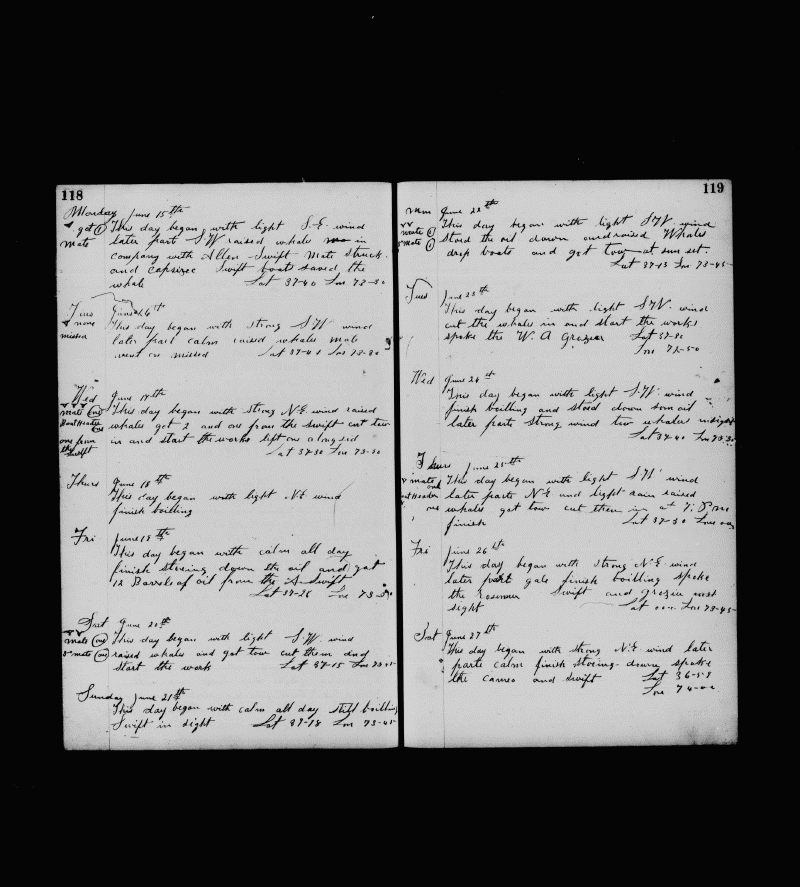 118
Monday June 15th
got 1 This day began with light S.E. wind
Mate later part SW raised whales in
company with Allen Swift Mate Struck
and capsized Swift boats saved the
whale Lat 37-40 Lon 73-30
Tues June 16th
none This day began with strong SW wind
missed later part calm raised whales mate
went on missed Lat 37-4 Lon 73-30
Wed June 17th
mate one This day began with strong N.E. wind raised
Boat Header one whales got 2 and on from the Swift cut two
one from in and start the works left on along sid
the Swift Lat 37-30 Lon 73-30
Thurs June 18th
This day began with light NE wind
finish boilling
Fri June 19th
This day began with calm all day
finish stowing down the oil and got
12 Barrels of oil from the A Swift
Lat 37-26 Lon 73-30
Sat June 20th
mate one This day began with light S.W. wind
2 mate one raised whales and got tow cut them and
start the work Lat 37-15 Lon
Sunday June 21st
This day began with calm all day still boilling
Swift in sight Lat 37-18 Lon 73-45
119
Mon June 22th
This day began with light SW. wind
mate 1 stoed the oil down and raised Whales
2 mate 1 drop boats and got tow at sun set.
Lat 37-13 Lon 73-45
Tues June 23th
This day began with light SW. wind
cut the whales in and start the works
spoke the W. A Grozier Lat 37-
Lon 72-50
Wed June 24th
This day began with light S.W. wind
finish boilling and stoed down som oil
later parts strong wind two whales insight
Lat 37-40 Lon 73-30
Thurs June 25th
mate one This day began with light SW wind
Boat Header later parts N.E and light rain raised
one whales got tow cut them in at 7:P m
finish Lat 37-30 Lon
Fri June 26th
This day began with strong N.E. wind
later part gale finish boilling spoke
the Swift and Grozier
sight Lat Lon 73-45
Sat June 27th
This day began with strong N.E wind later
parts calm finish stoeing down spoke
the cameo and Swift Lat 36-58
Lon 74-00